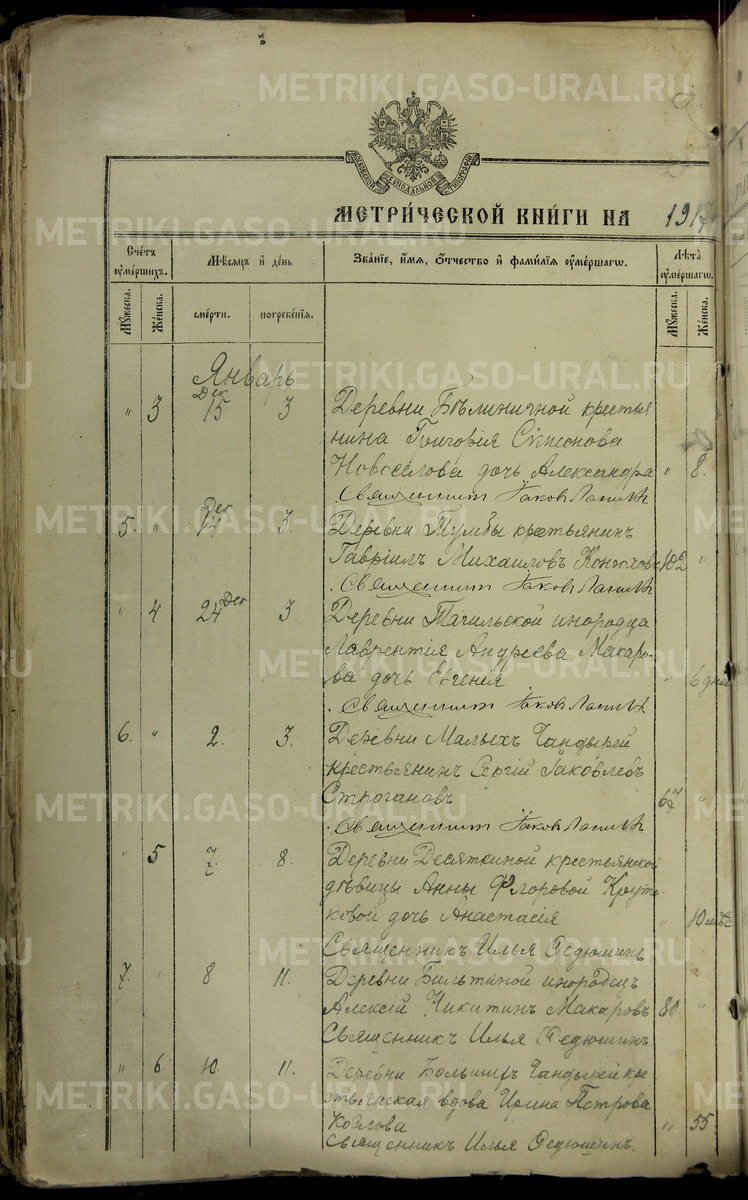 METRIKI.GASO-URAL.RU
МОСКОВСКОЙ СѴНОДАЛЬНОЙ ТИПОГРАФІИ
МЕТРИ́ЧЕСКОЙ КНИ́ГИ НА 1917
Сче́тъ ᲂу҆ме́ршихъ.
Мѣ́сяцъ и҆ де́нь
Зва́ніе, и҆́мя, ѻ҆́тчество и҆ фами́лія ᲂу҆ме́ршагѡ.
Лѣ́та ᲂу҆ме́ршагѡ.
Мꙋ́жеска.
Же́нска.
сме́рти.
погребе́нія.
Мꙋ́жеска.
Же́нска.
Январь
" 3 Дек 15 3 Деревни Бѣлиничной крестья
нина Григорія
Новоселова дочь Александра " 8.
Священникъ Іаковъ
5. " Дек 3. Деревни Тумбы крестьянинъ
Гавріилъ Михаиловъ Конюховъ 102 "
Священникъ Іаковъ
" 4 24 Дек 3 Деревни Тагильской инородца
Лаврентія Андреева Макаро-
ва дочь Евгенія " 6 дней
Священникъ Іаковъ
6. " 2. 3. Деревни Малыхъ Чандырей
крестьянинъ Сергій Іаковлевъ
Строгановъ 67 "
Священникъ Іаковъ
" 5 7. 8. Деревни Десяткиной крестьянской
дѣвицы Анны Флоровой Крути-
ковой дочь Анастасія "
Священникъ Илья Федюшинъ
7. " 8 11. Деревни Бильтиной инородецъ
Алексій Никитинъ Макаровъ 80 "
Священникъ Илья Федюшинъ
" 6. 10. 11. Деревни Большихъ Чандырей кре
стьянская вдова Ирина Петрова
Козлова " 55
Священникъ Илья Федюшинъ.